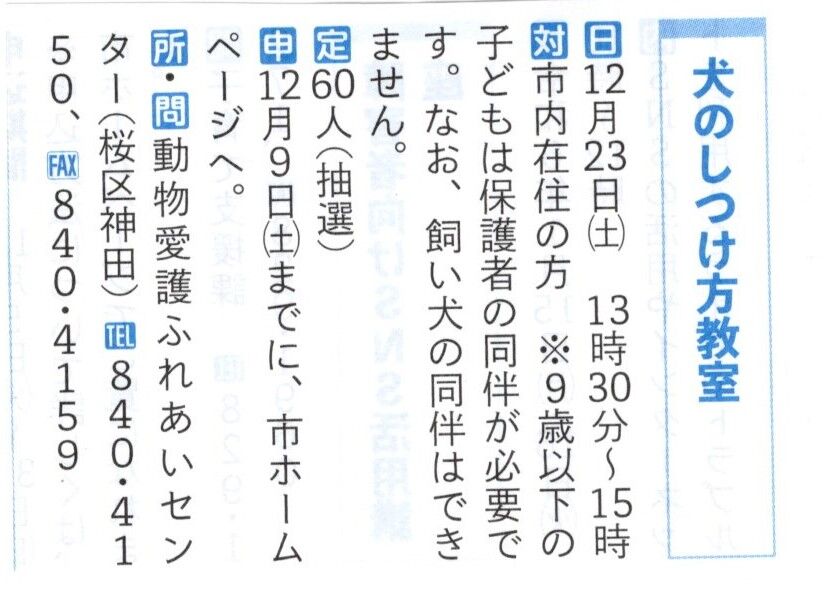 犬のしつけ方教室
日12月23日㈯　13時30分〜15時
対市内在住の方　※9歳以下の
子どもは保護者の同伴が必要で
す。なお、飼い犬の同伴はでき
ません。
定60人（抽選）
申12月9日㈯までに、市ホーム
ページへ。
所・問動物愛護ふれあいセン
ター（桜区神田）TEL840・41
50、FAX840・4159